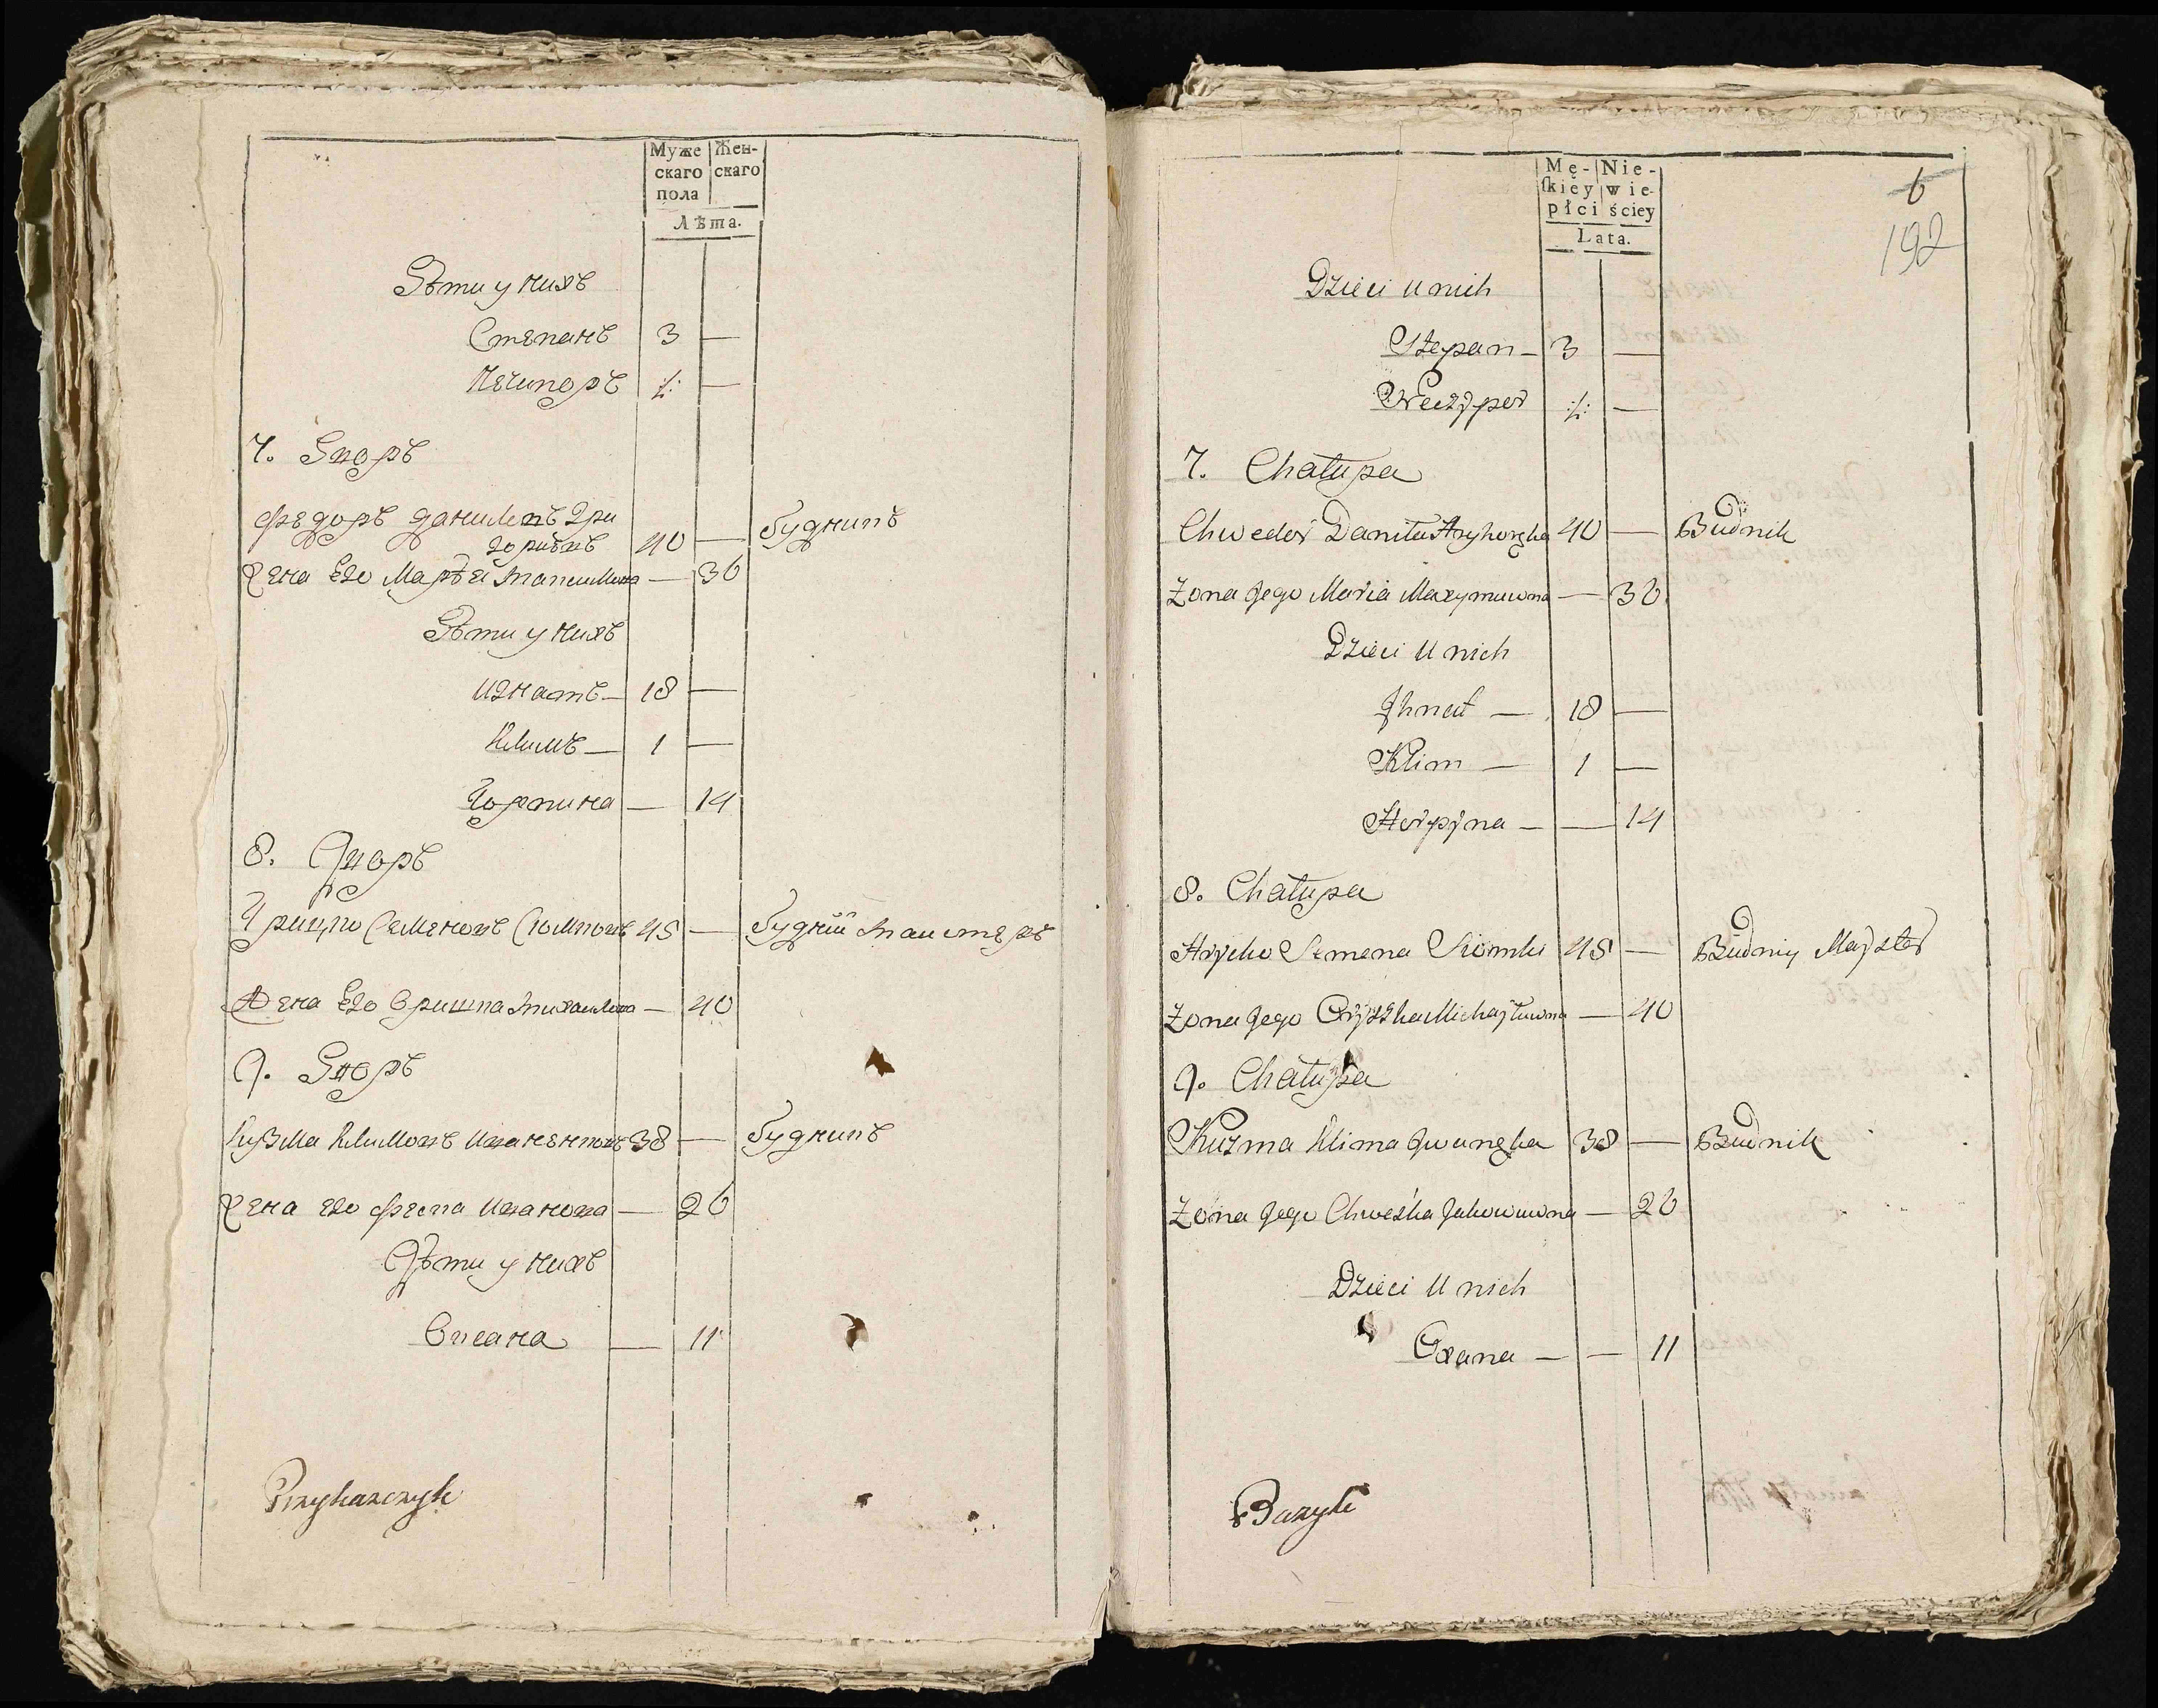 Муже Жен-
скаго скаго
пола
Лѣта.
Дѣти у нихъ
Степанъ 3 —
Нечипоръ ./. —
7. Дворъ
Федоръ Даниловъ Гри
горивъ 40 — будникъ
Жена Его Марѣя Максимова — 36
Дѣти у нихъ
Игнатъ — 18 —
Климъ — 1 —
Горпина — 14
8. Дворъ
Грицко Семеновъ Сюмковъ 45 — будній майстеръ
Жена Его Оришка Михайлова — 40
9. Дворъ
Кузма Климовъ Иваненковъ 38 — будникъ
Жена Его Феска Иванова — 26
Дѣти у нихъ
Оксана — 11
Przykazczyk
Mę- Nie-
ſkiéy wie-
płci ściey
Lata.
6
192
Dzieci u nich
Stepan — 3 —
Neczypor ./. —
7. Chałupa
Chwedor Daniła Hryhorzka 40 — Budnik
Żona Jego Maria Maxymuwna — 36
Dzieci u nich
Jhnat — 18 —
Klim — 1 —
Horpyna — — 14
8. Chałupa
Hrycko Semena Siomki 45 — Budniy Mayster
Żona Jego Oryszka Michayłuwna — 40
9. Chałupa
Kuzma Klima Jwanzka 38 — Budnik
Żona Jego Chweśka Jakowuwna — 26
Dzieci u nich
Oxana — — 11
Bazyli